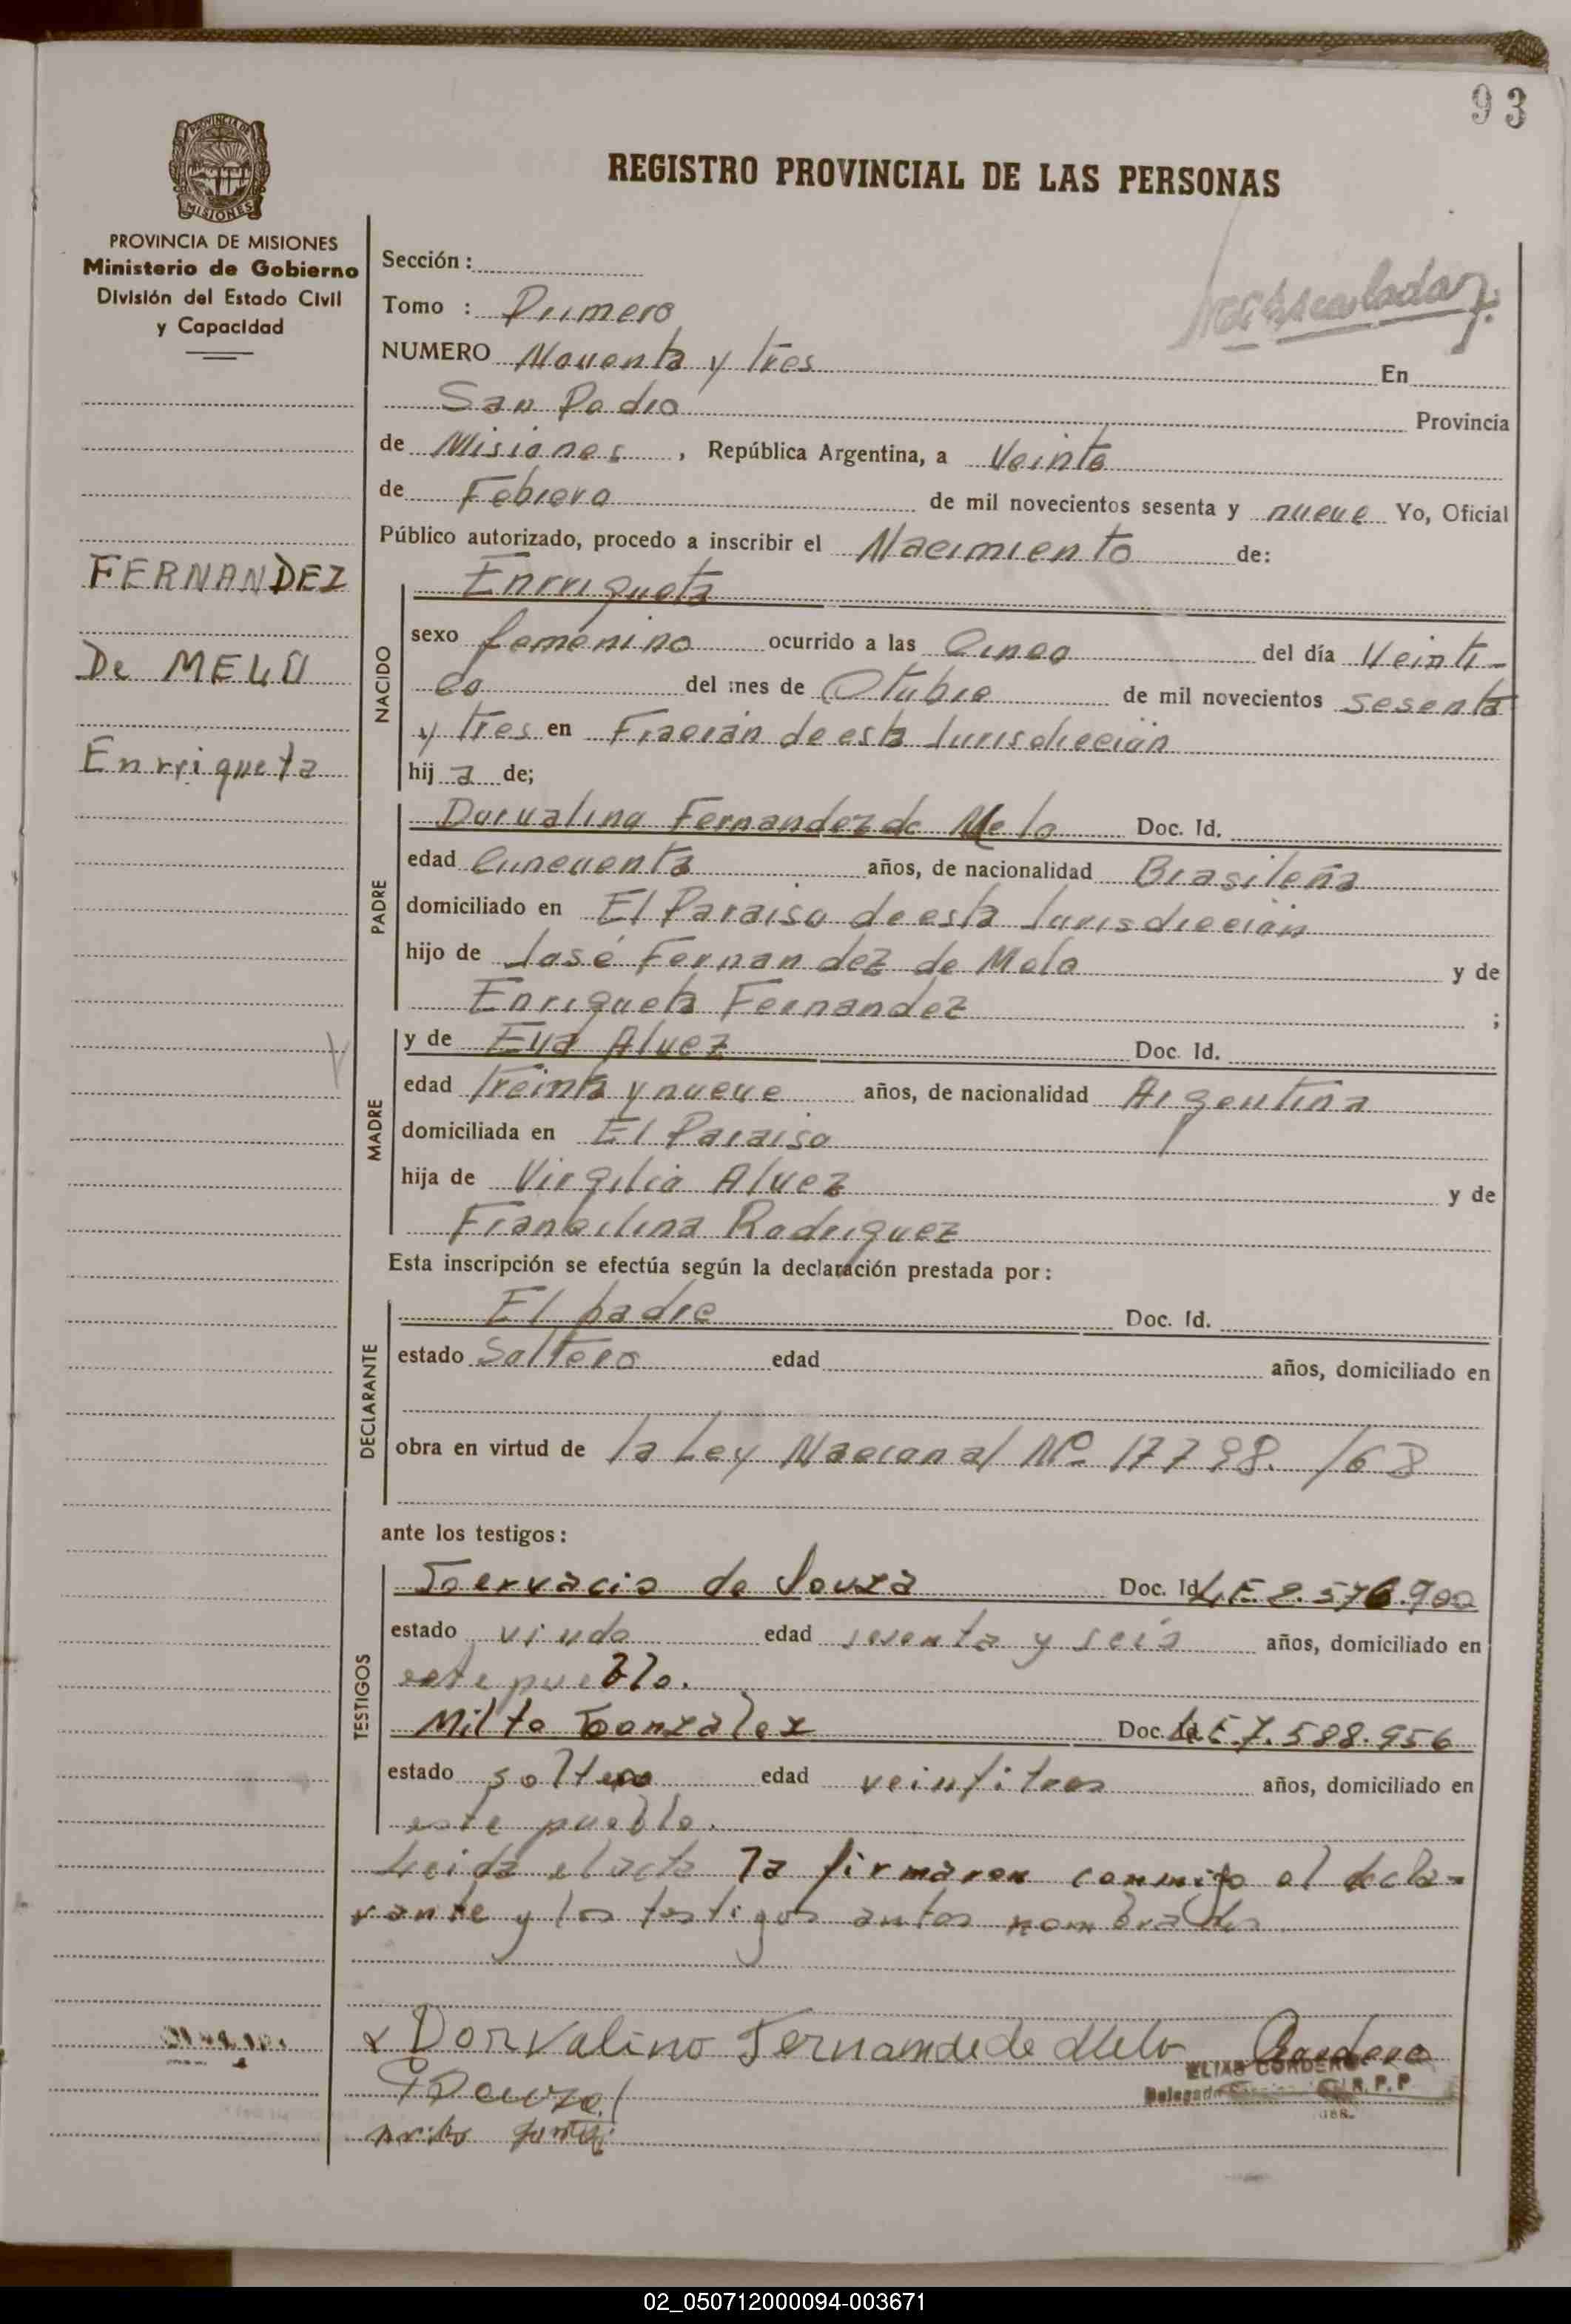 93
PROVINCIA DE
MISIONES
REGISTRO PROVINCIAL DE LAS PERSONAS
PROVINCIA DE MISIONES
Ministerio de Gobierno
División del Estado Civil
y Capacidad
FERNANDEZ
De MELO
Enrriqueta
Sección :
Tomo : Primero
NUMERO Noventa y tres En
San Pedro Provincia
de Misiones , República Argentina, a Veinte
de Febrero de mil novecientos sesenta y nueve Yo, Oficial
Público autorizado, procedo a inscribir el Nacimiento de:
NACIDO
Enrriqueta
sexo femenino ocurrido a las Cinco del día Veinti-
del mes de Otubre de mil novecientos sesenta
y tres en Fracrán de esta Jurisdicción
hij a de;
PADRE
Dorvalino Fernandez de Melo Doc. Id.
edad Cincuenta años, de nacionalidad Brasileña
domiciliado en El Paraiso de esta Jurisdicción
hijo de José Fernandez de Melo y de
Enriqueta Fernandez ;
MADRE
y de Eva Alvez Doc. Id.
edad Treinta y nueve años, de nacionalidad Argentina
domiciliada en El Paraiso
hija de Virgilio Alvez y de
Francilina Rodriguez
Esta inscripción se efectúa según la declaración prestada por :
DECLARANTE
El padre Doc. Id.
estado Soltero edad años, domiciliado en
obra en virtud de la Ley Nacional Nº 17798. /68
ante los testigos :
TESTIGOS
Gervacio de Souza Doc. Id. L.E. 2.576.900
estado viudo edad sesenta y seis años, domiciliado en
este pueblo.
Milto Gonzàlez Doc. Id. L.E 7.588.956
estado soltero edad veintitres años, domiciliado en
este pueblo.
Leida el acta la firmaron conmigo el decla-
rante y los testigos antes nombrados
x Dorvalino Fernande de Melo
ELIAS CORDERO
Delegado R.P.P.
02_050712000094-003671